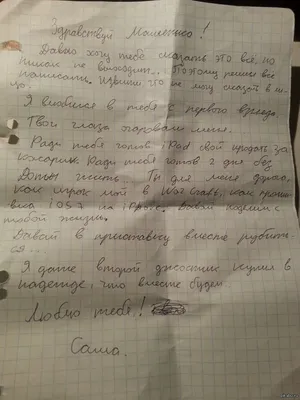 Здравствуй Машенько!
Давно хочу тебе сказать это всё, но
никак не выходит... Поэтому решил всё
написать. Извини что не могу сказать в ли-
цо.
Я влюбился в тебя с первого взгляда.
Твои глаза очаровали меня.
Ради тебя готов iPad свой продать за
копейки. Ради тебя готов 2 дня без
Доты жить. Ты для меня дороже,
как в WoT
iOS 7 на
тобой жизнь.
Давай в приставку вместе рубить
ся.
Я даже второй джостик купил в
надежде, что вместе будем.
Люблю тебя!
Саша.